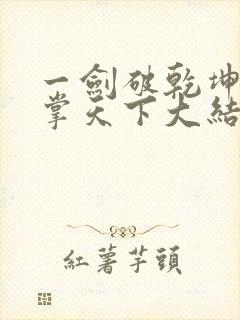 一劍破乾坤
掌天下大結
紅薯芋頭